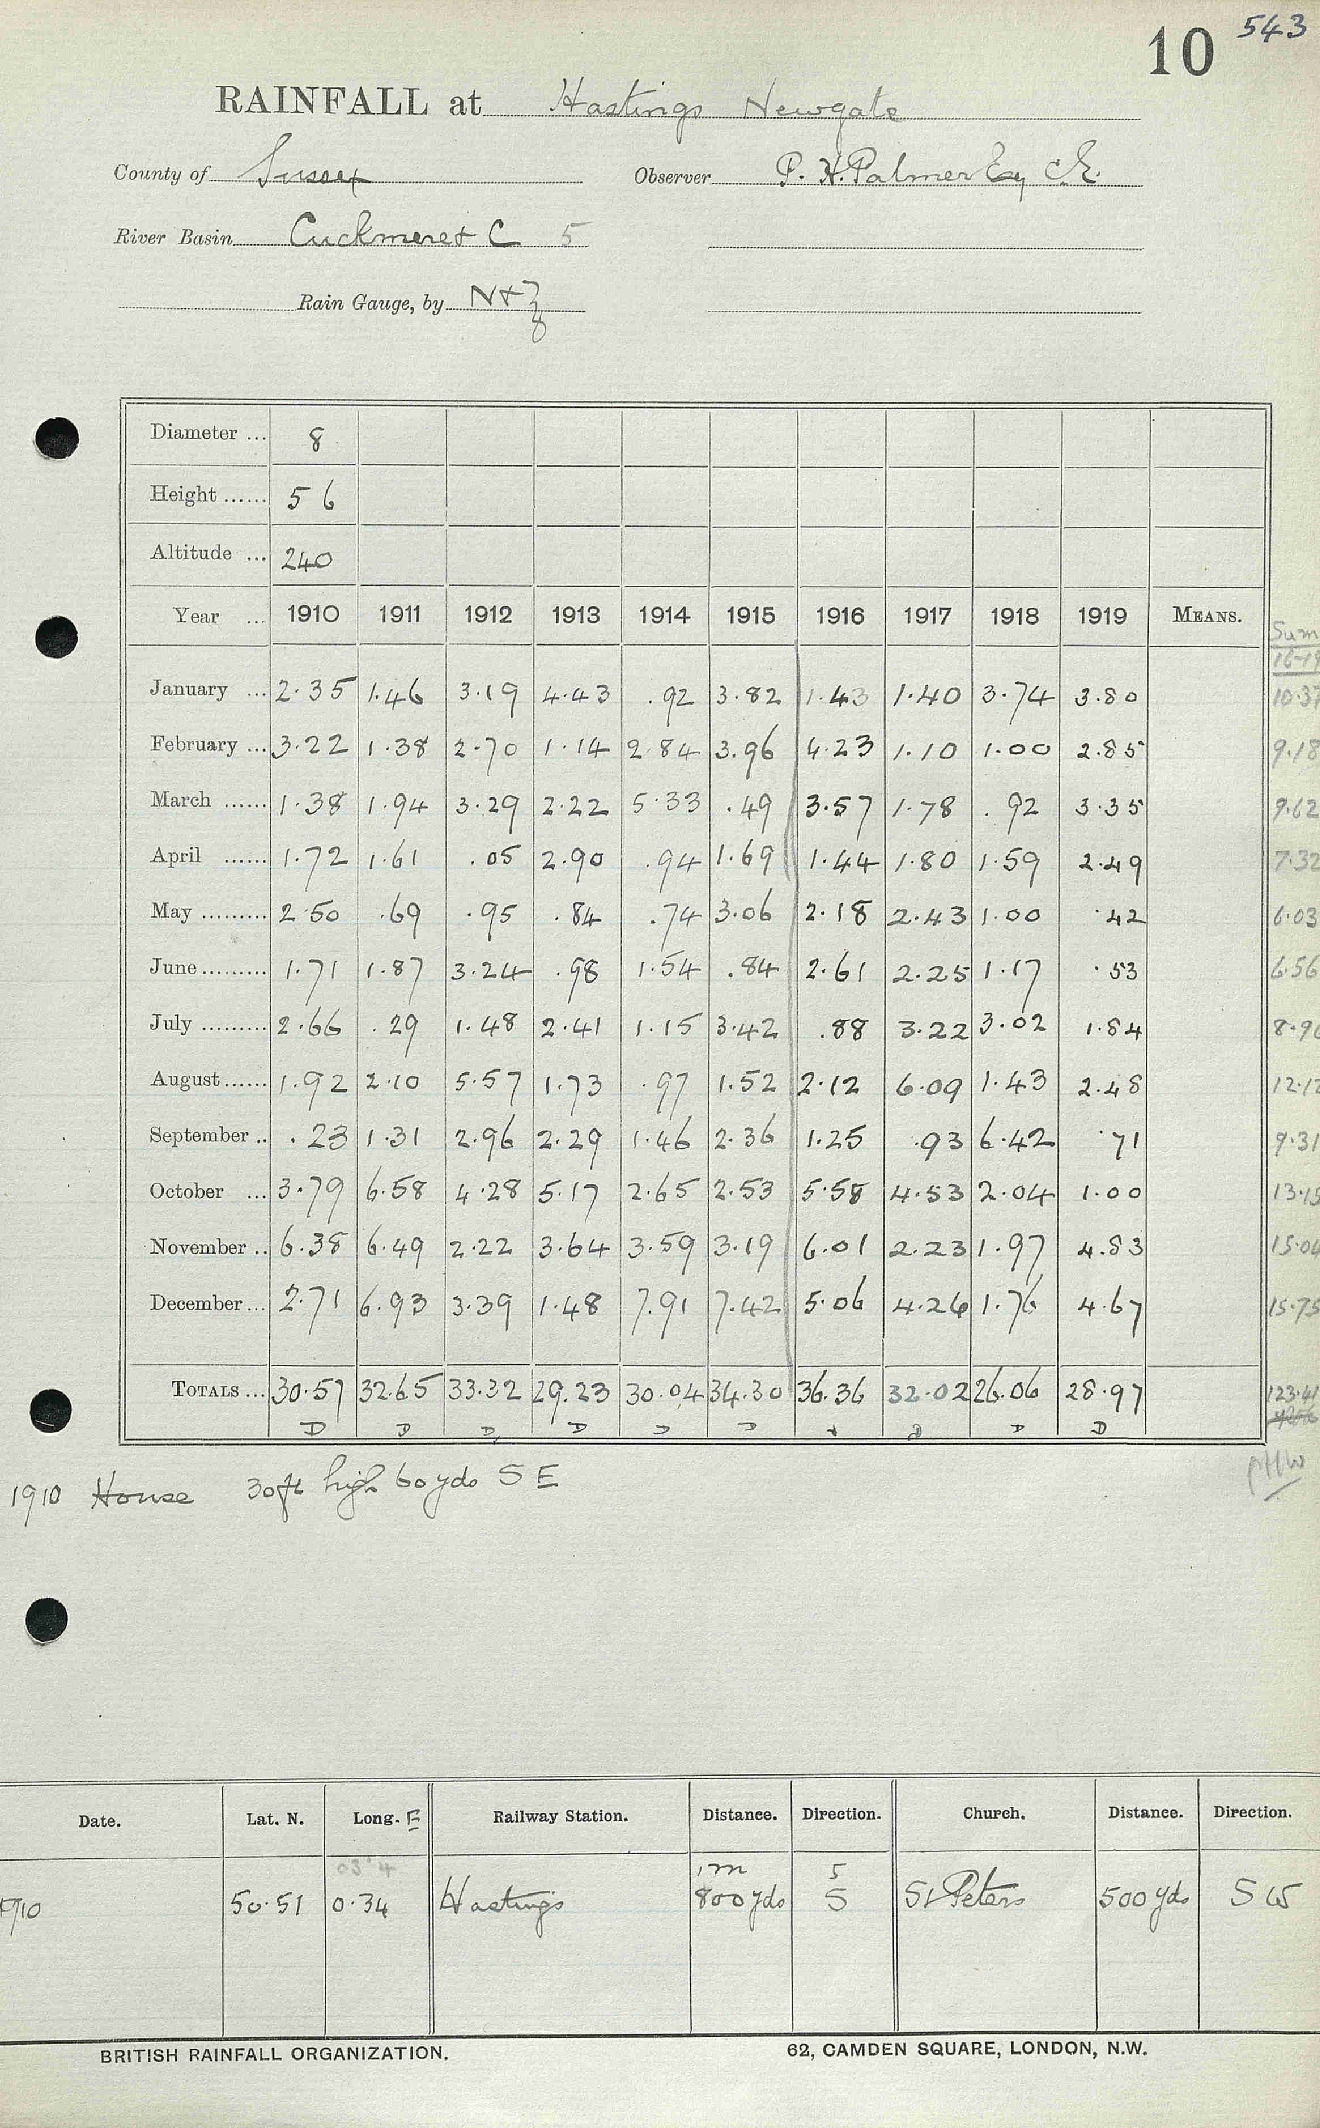 10 543
RAINFALL at Hastings Newgate
County of Sussex Observer P. H. Palmer Esq C.E.
River Basin Cuckmere & C 5
Rain Gauge, by N & Z
Diameter ... 8
Height ...... 5 6
Altitude ... 240
Year ... 1910 1911 1912 1913 1914 1915 1916 1917 1918 1919 MEANS. Sum
16-19
January ... 2.35 1.46 3.19 4.43 .92 3.82 1.43 1.40 3.74 3.80 10.37
February ... 3.22 1.38 2.70 1.14 2.84 3.96 4.23 1.10 1.00 2.85 9.18
March ...... 1.38 1.94 3.29 2.22 5.33 .49 3.57 1.78 .92 3.35 9.62
April ...... 1.72 1.61 .05 2.90 .94 1.69 1.44 1.80 1.59 2.49 7.32
May ......... 2.50 .69 .95 .84 .74 3.06 2.18 2.43 1.00 .42 6.03
June ......... 1.71 1.87 3.24 .98 1.54 .84 2.61 2.25 1.17 .53 6.56
July ......... 2.66 .29 1.48 2.41 1.15 3.42 .88 3.22 3.02 1.84 8.96
August ...... 1.92 2.10 5.57 1.73 .97 1.52 2.12 6.09 1.43 2.48 12.12
September .. .23 1.31 2.96 2.29 1.46 2.36 1.25 .93 6.42 .71 9.31
October ... 3.79 6.58 4.28 5.17 2.65 2.53 5.58 4.53 2.04 1.00 13.15
November .. 6.38 6.49 2.22 3.64 3.59 3.19 6.01 2.23 1.97 4.83 15.04
December ... 2.71 6.93 3.39 1.48 7.91 7.42 5.06 4.26 1.76 4.67 15.75
TOTALS ... 30.57 32.65 33.32 29.23 30.04 34.30 36.36 32.02 26.06 28.97 123.41
D D D D D D D D D
1910 House 30ft high 60 yds S E
Date. Lat. N. Long. E Railway Station. Distance. Direction. Church. Distance. Direction.
03'4 1m S
1910 50.51 0.34 Hastings 800 yds S St Peters 500 yds S W
BRITISH RAINFALL ORGANIZATION. 62, CAMDEN SQUARE, LONDON, N.W.